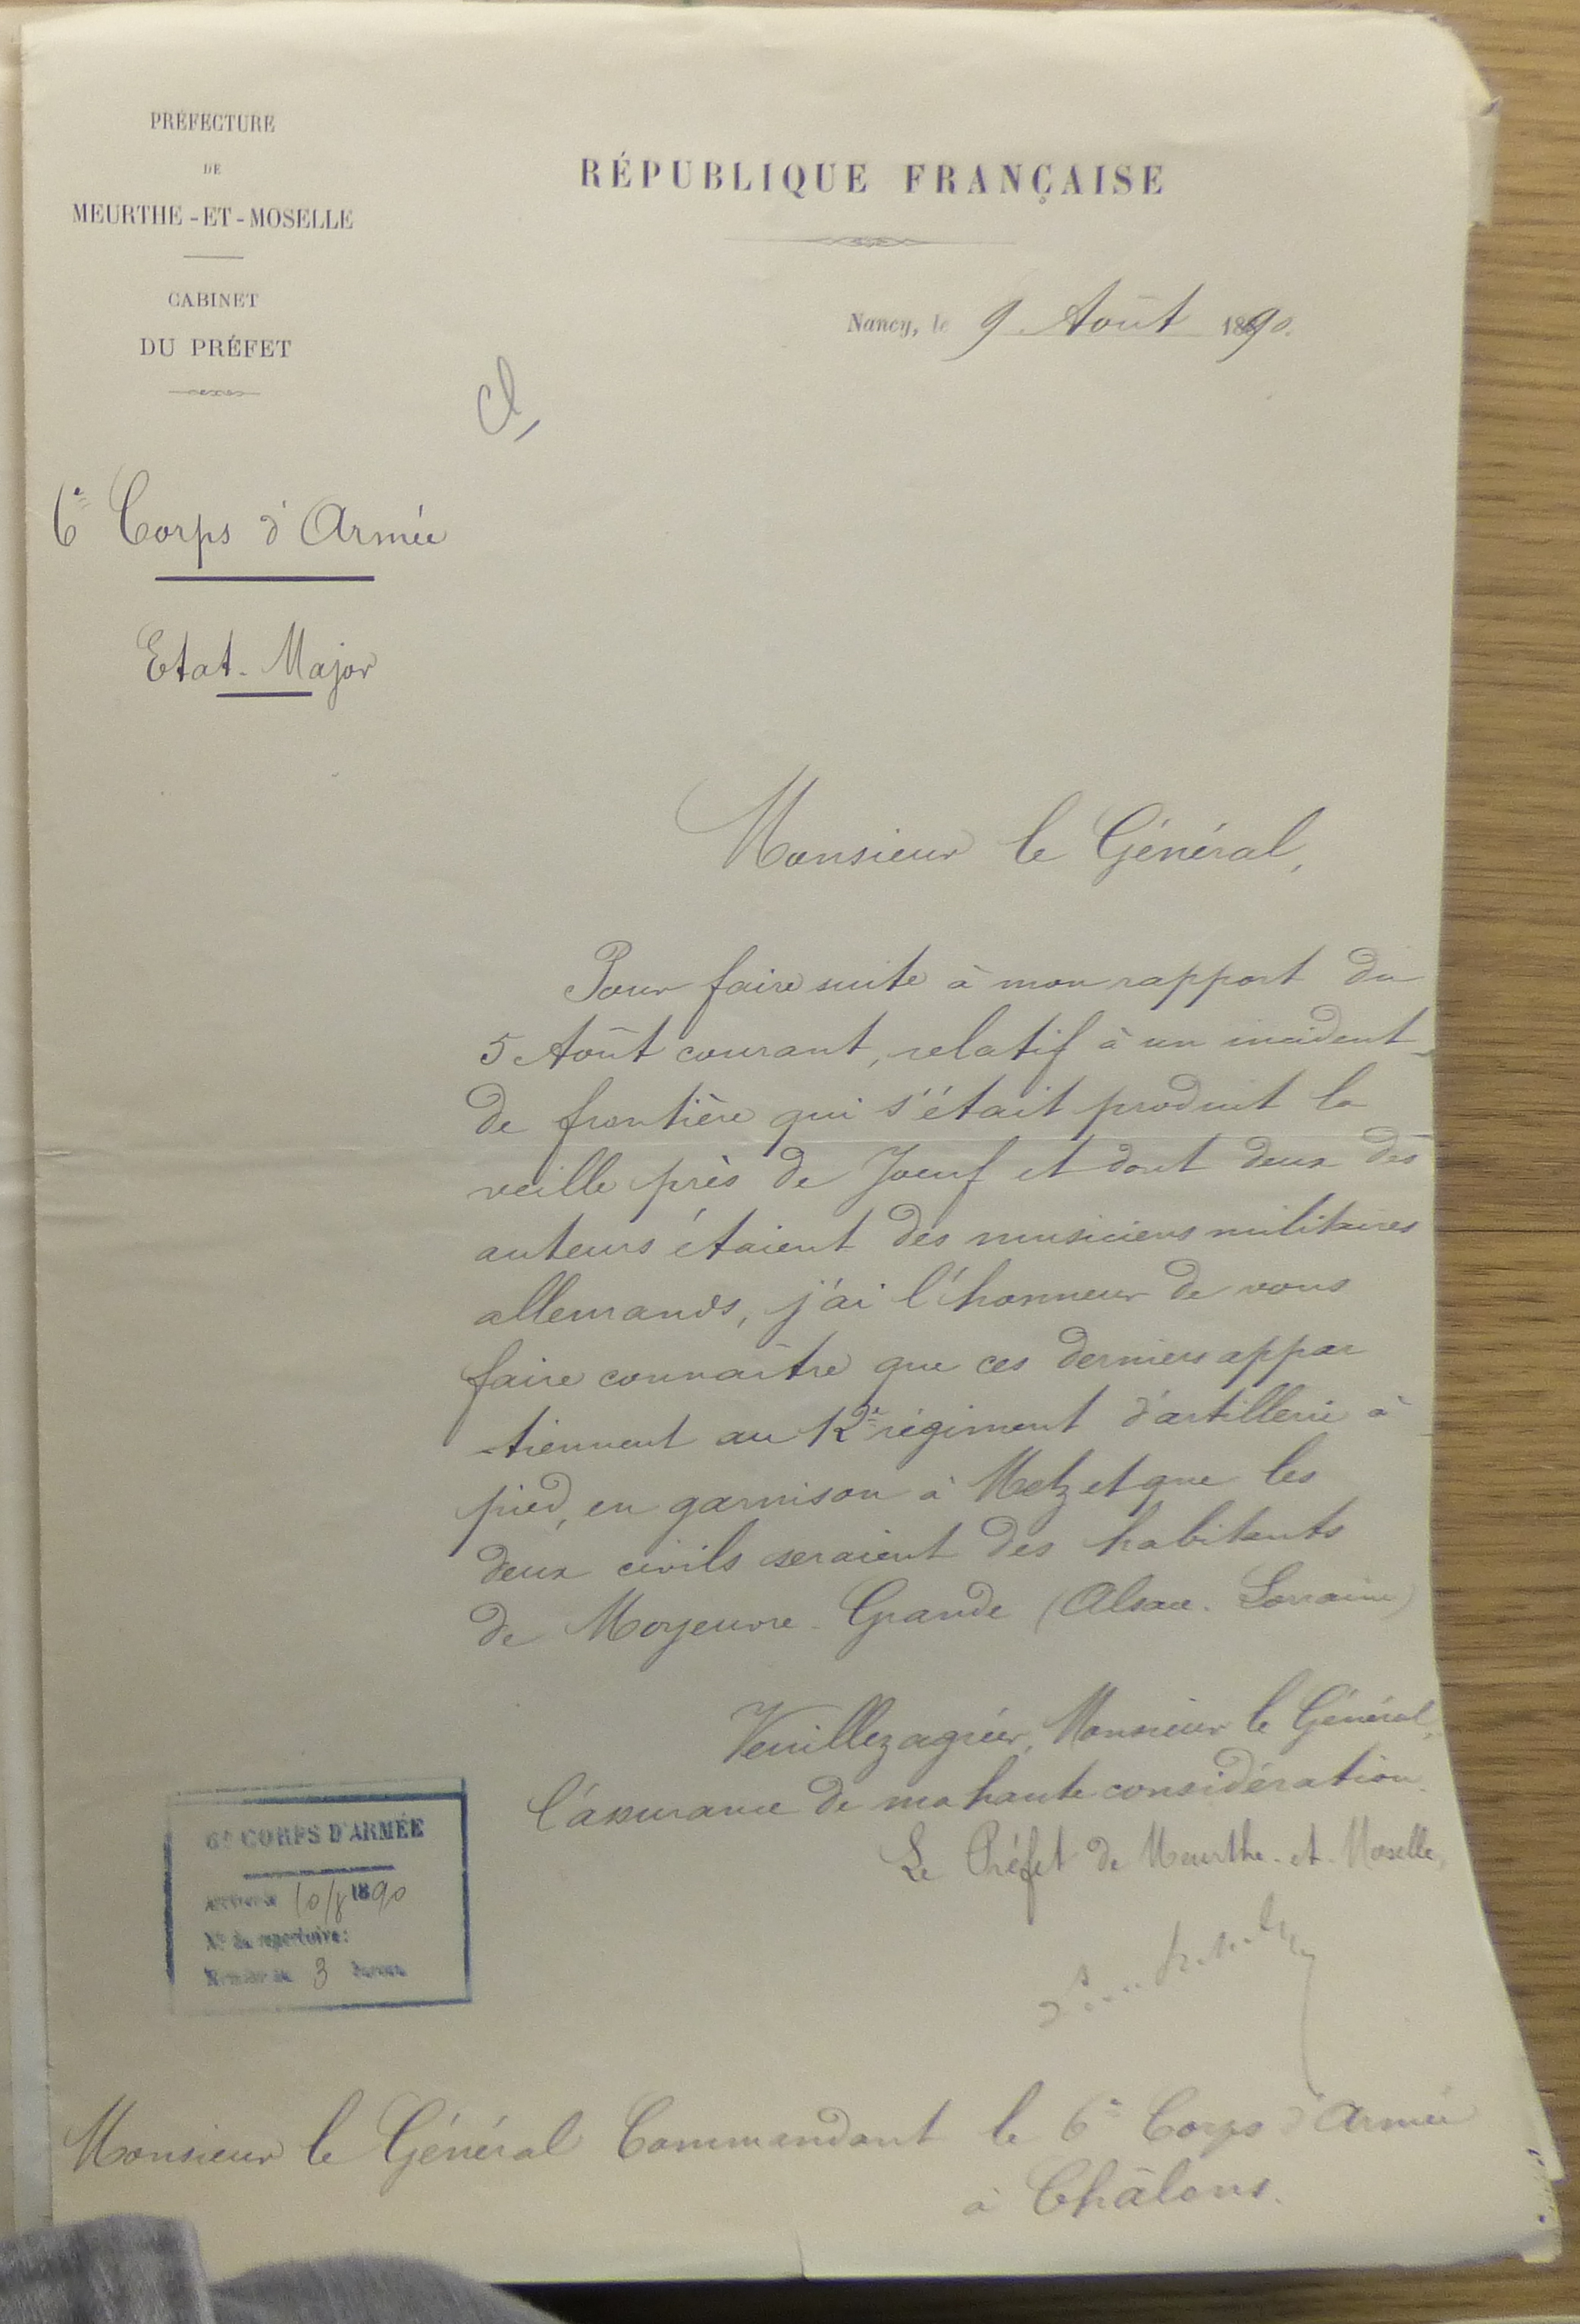 PRÉFECTURE
DE
MEURTHE-ET-MOSELLE
CABINET
DU PRÉFET
RÉPUBLIQUE FRANÇAISE
Nancy, le 9 Août 1890.
6e Corps d'Armée
Etat-Major
Monsieur le Général,
Pour faire suite à mon rapport du
5 Août courant, relatif à un incident
de frontière qui s'était produit la
veille près de Joeuf et dont deux des
auteurs étaient des musiciens militaires
allemands, j'ai l'honneur de vous
faire connaître que ces derniers appar
-tiennent au 12e régiment d'artillerie à
pied, en garnison à Metz et que les
deux civils seraient des habitants
de Moyeuvre-Grande (Alsace-Lorraine)
Veuillez agréer, Monsieur le Général,
l'assurance de ma haute considération.
Le Préfet de Meurthe-et-Moselle,
6e CORPS D'ARMÉE
10/8 1890
No du repertoire:
3 bureau
Monsieur le Général Commandant le 6e Corps d'Armée
à Châlons.